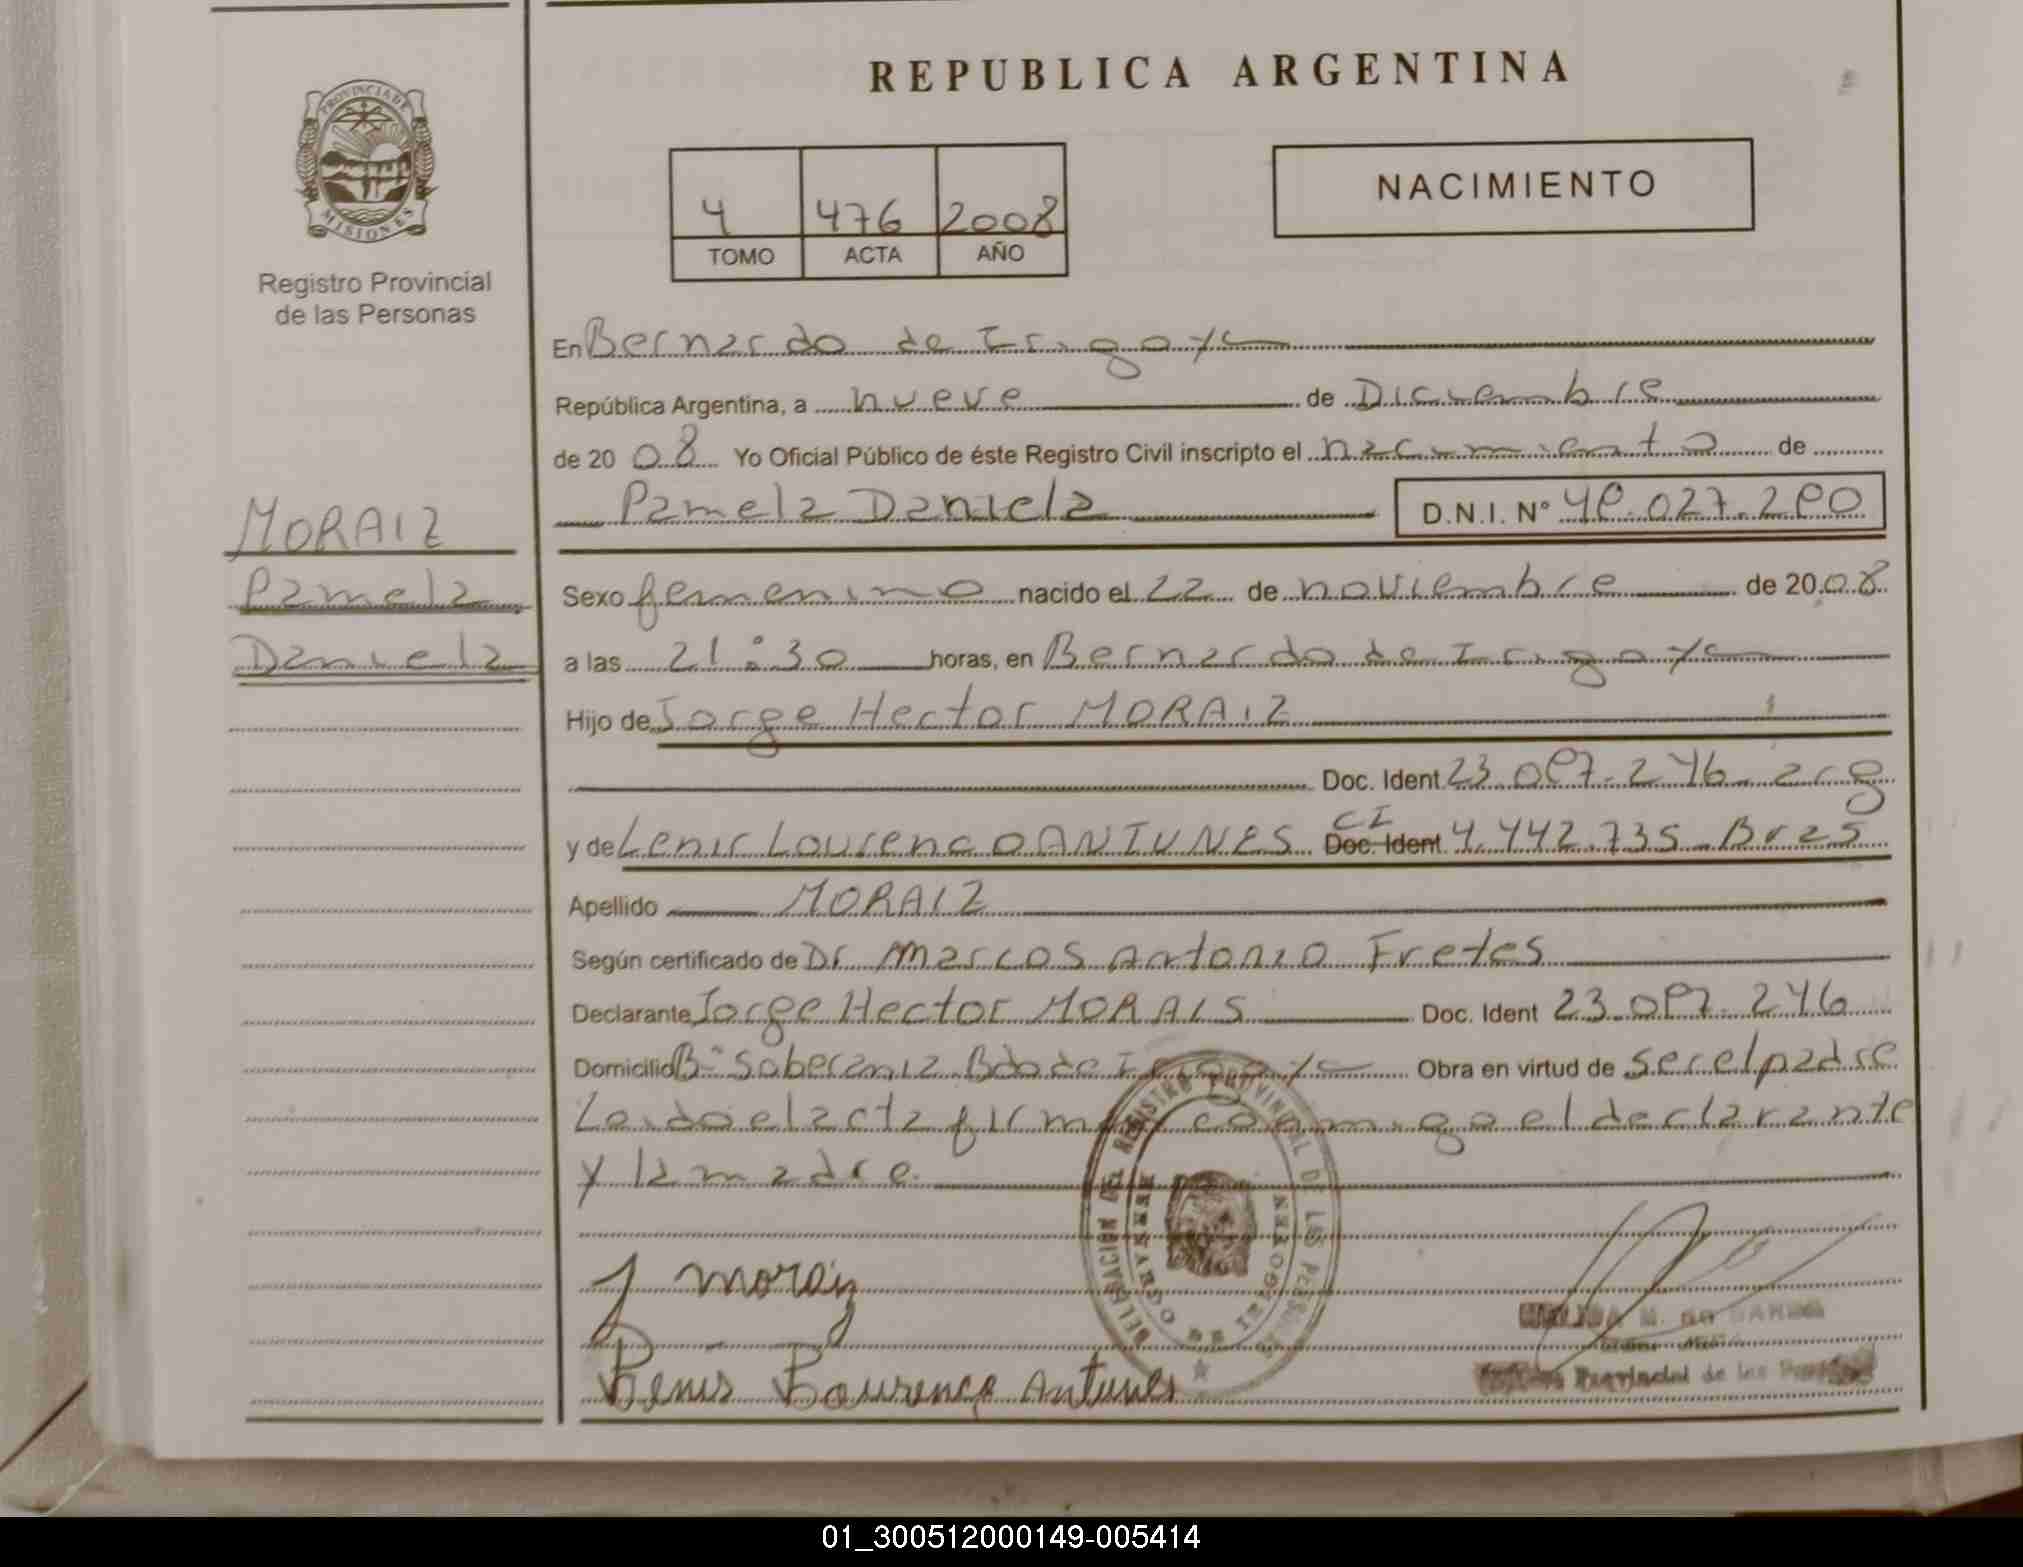 PROVINCIA DE
MISIONES
Registro Provincial
de las Personas
MORAIZ
Pamela
Daniela
REPUBLICA ARGENTINA
4 476 2008
TOMO ACTA AÑO
NACIMIENTO
En Bernardo de Irigoye
República Argentina, a nueve de Diciembre
de 2008 Yo Oficial Público de éste Registro Civil inscripto el nacimiento de
Pamela Daniela D.N.I. Nº
Sexo femenino nacido el 22 de noviembre de 2008
a las 21:30 horas, en Bernardo de Irigoye
Hijo de Jorge Hector MORAIZ
Doc. Ident arg
y de Lenir Lourenco ANTUNES CI Doc. Ident 4.442.735 Bras
Apellido MORAIZ
Según certificado de Dr Marcos Antonio Fretes
Declarante Jorge Hector MORAIS Doc. Ident
Domicilio Bº Soberania Bdo de Irigoye Obra en virtud de ser el padre
Leida el acta firma conmigo el declarante
y la madre.
DELEGACION DEL REGISTRO PROVINCIAL DE LAS PERSONAS
BERNARDO DE IRIGOYEN
J moraiz
Lenir Lourenço Antunes
Provincial de las
01_300512000149-005414